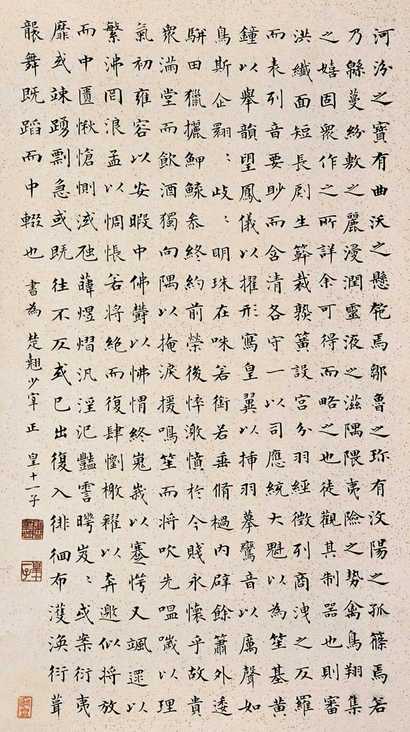 河汾之寶有曲沃之懸匏焉鄒魯之珍有汶陽之孤篠焉若
乃緜蔓紛敷之麗浸潤靈液之滋隅隈夷險之勢禽鳥翔集
之嬉固衆作之所詳余可得而略之也徒觀其制器也則審
洪纖面短長剫生簳裁熟簧設宮分羽經徵列商洩之反羅
而表列音要眇而含清各守一以司應統大魁以為笙基黃
鐘以舉韻望鳳儀以擢形寫皇翼以插羽摹鸞音以厲聲如
鳥斯企翾:歧:明珠在咮若銜若垂脩檛內辟餘簫外逶
駢田獵攦參終約前榮後悴激憤於今賤永懷乎故貴
衆滿堂而飲酒獨向隅以掩淚援鳴笙而將吹先嗢噦以理
氣初雍容以安暇中佛鬱以怫終嵬峩以蹇愕又颯遝以
繁沸罔浪孟以惆悵若將絕而復肆懰檄糴以奔邀似將放
而中匱愀愴惻淢虺韡煜熠汎淫氾豔霅曄岌:或案衍夷
靡或竦踴剽急或既往不反或已出復入徘徊布濩渙衍葺
襲舞既蹈而中輟也 書為 楚翹少宰正 皇十一子